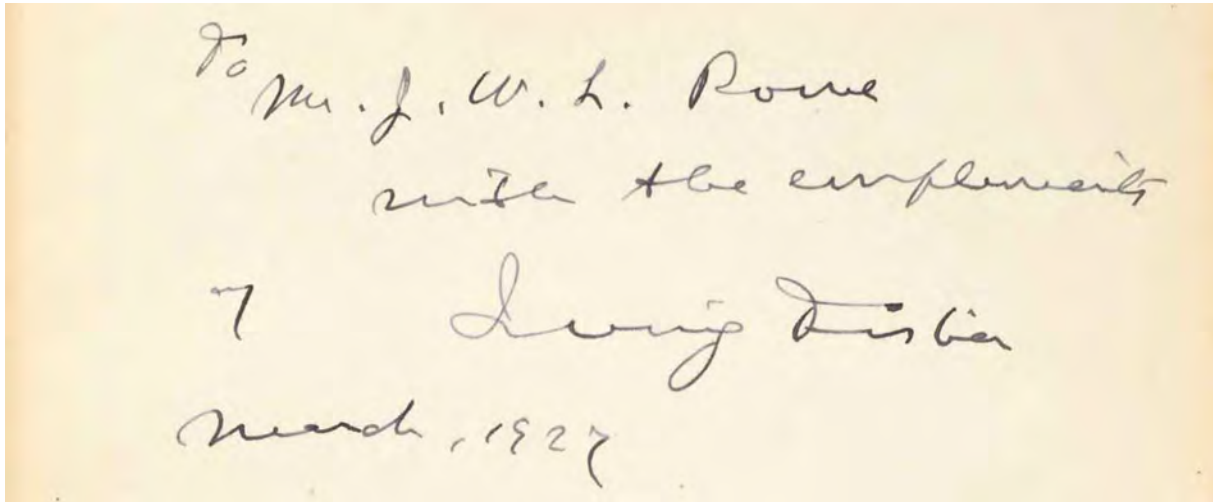 To
Mr. J. W. L. Rowe
with the compliments
of Irving Fisher
March, 1927